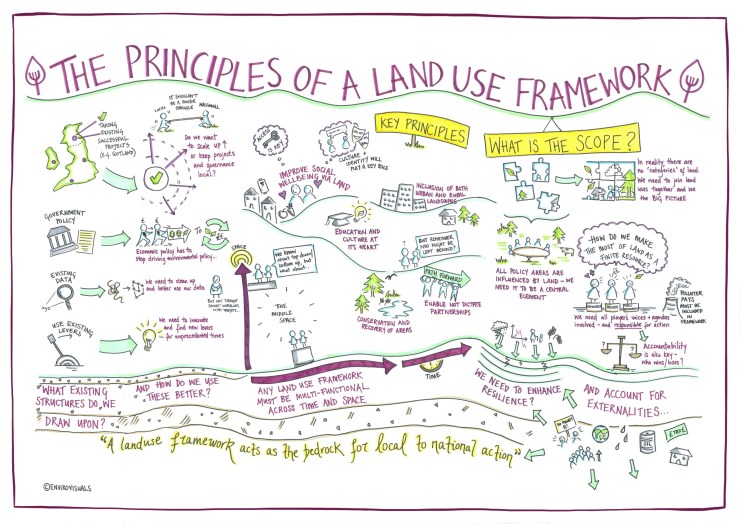 THE PRINCIPLES OF A LAND USE FRAMEWORK
IT SHOULDN'T
BE A POWER
STRUGGLE
LOCAL
NATIONAL
TAKING
EXISTING
SUCCESSFUL
PROJECTS
(E.G. SCOTLAND)
Do we want
to scale UP
or keep projects
and governance
local?
GOVERNMENT
POLICY
TO
Economic policy has to
stop driving environmental policy...
EXISTING
DATA?
We need to clean up
and better use our data
USE EXISTING
LEVERS?
We need to innovate
and find new levers
for unprecedented times
ACCESS
IS KEY
CULTURE +
IDENTITY WILL
PLAY A KEY ROLE
IMPROVE SOCIAL
WELLBEING VIA LAND
KEY PRINCIPLES
INCLUSION OF BOTH
URBAN AND RURAL
LANDSCAPES
EDUCATION AND
CULTURE AT
ITS HEART
BUT REMEMBER
WHO MIGHT BE
LEFT BEHIND?
PATH FORWARD
ENABLE NOT DICTATE
PARTNERSHIPS
CONSERVATION AND
RECOVERY OF AREAS
SPACE
We know
about top down,
bottom up, but
what about...
THE
MIDDLE
SPACE
WHAT IS THE SCOPE?
In reality, there are
no "categories" of land.
We need to join land
uses together and see
the BIG PICTURE
ALL POLICY AREAS ARE
INFLUENCED BY LAND - WE
NEED IT TO BE A CENTRAL
ELEMENT
HOW DO WE MAKE
THE MOST OF LAND AS A
FINITE RESOURCE?
POLLUTER
PAYS
MUST BE
INCLUDED IN
FRAMEWORK
We need all players voices + agendas
involved - and responsible for action
Accountability
is also key -
who wins/loses?
WHAT EXISTING
STRUCTURES DO WE
DRAW UPON?
AND HOW DO WE USE
THESE BETTER?
ANY LAND USE FRAMEWORK
MUST BE MULTI-FUNCTIONAL
ACROSS TIME AND SPACE
TIME
WE NEED TO ENHANCE
RESILIENCE?
AND ACCOUNT FOR
EXTERNALITIES...
OIL
"A landuse framework acts as the bedrock for local to national action"
©ENVIROVISUALS